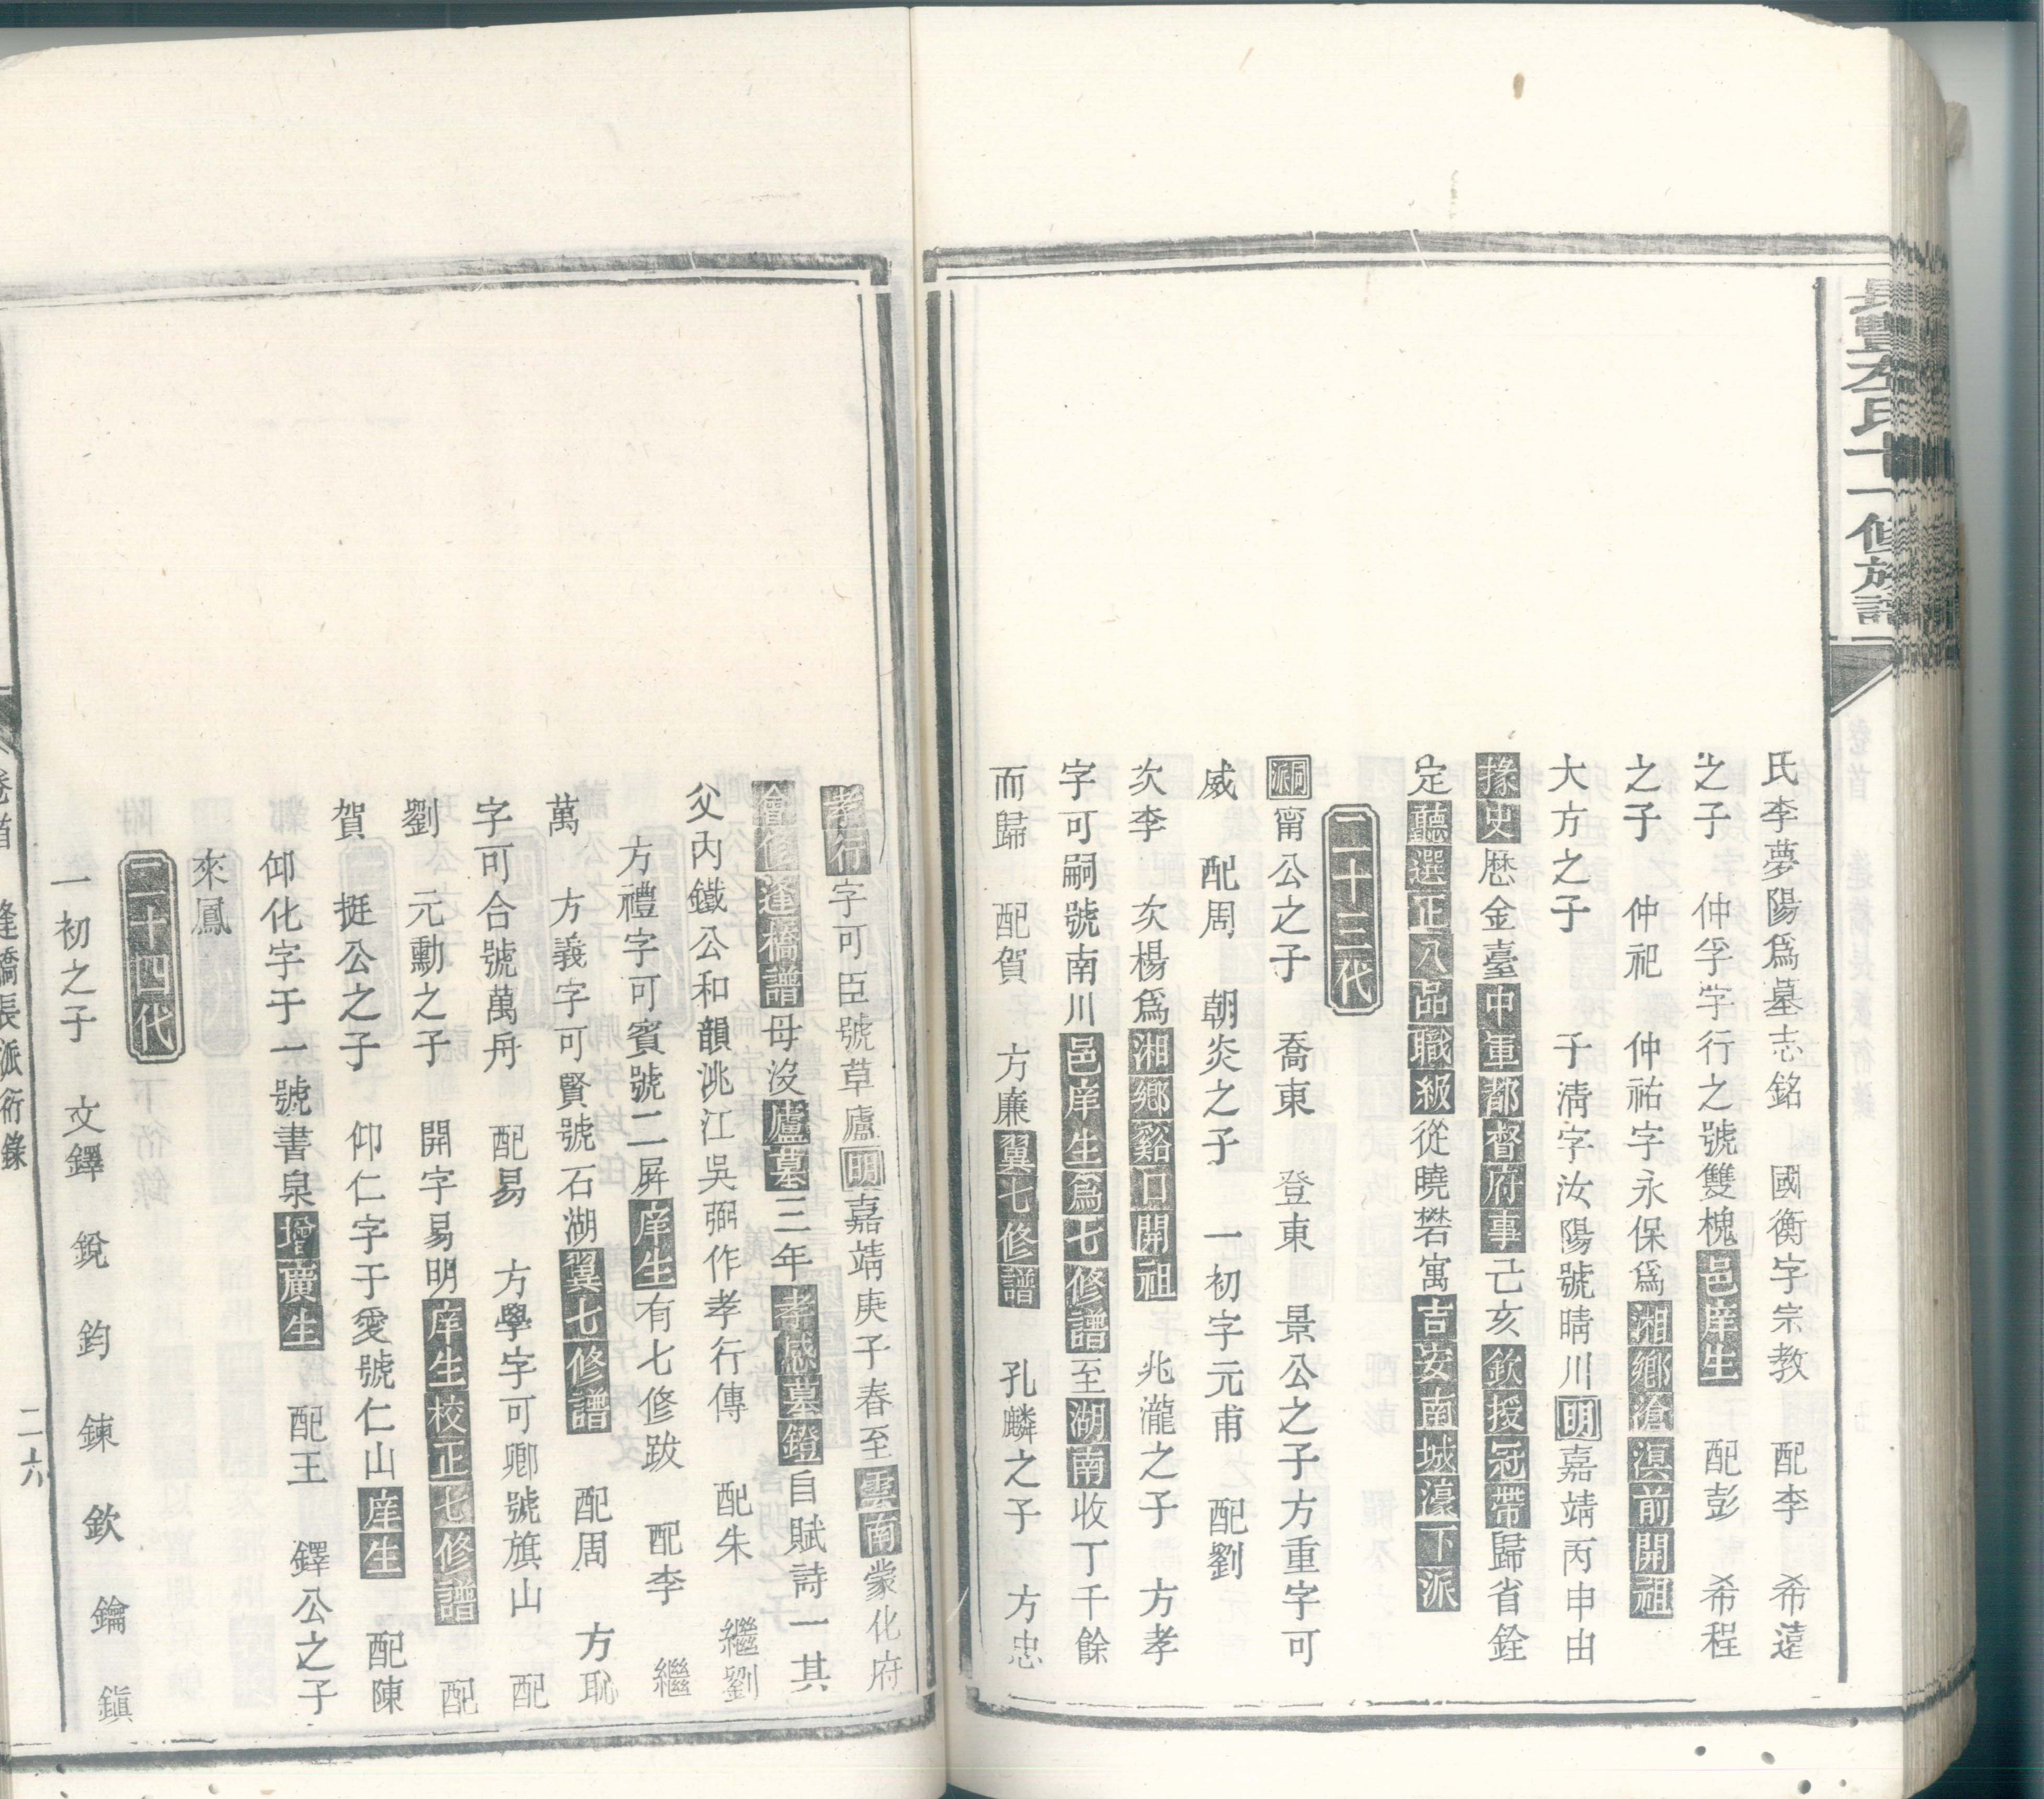 長豐左氏十一修族譜
氏李夢陽爲墓志銘　國衡字宗教　配李　希遠
之子　仲孚字行之號雙槐邑庠生　配彭　希程
之子　仲祀　仲祐字永保爲湘鄉滄溟前開祖
大方之子　于清字汝陽號晴川明嘉靖丙申由
掾史歷金臺中軍都督府事己亥欽授冠帶歸省銓
定聽選正八品職級從曉礬寓吉安南城濠下派
甯公之子　喬東　登東　景公之子方重字可
二十三代
威　配周　朝炎之子　一初字元甫　配劉
次李　次楊爲湘鄉谿口開祖　兆瀧之子　方孝
字可嗣號南川邑庠生爲七修譜至湖南收丁千餘
而歸　配賀　方廉翼七修譜　孔麟之子　方忠
孝行字可臣號草廬明嘉靖庚子春至雲南蒙化府
會修逢橋譜母沒廬墓三年孝感墓鐙自賦詩一其
父內鐵公和韻洮江吳弼作孝行傳　配朱　繼劉
方禮字可賓號二屏庠生有七修跋　配李　繼
萬　方義字可賢號石湖翼七修譜　配周　方恥
字可合號萬舟　配易　方學字可卿號旗山　配
劉　元勳之子　開字易明庠生校正七修譜　配
賀　挺公之子　仰仁字于愛號仁山庠生　配陳
仰化字于一號書泉增廣生　配王　鐸公之子
來鳳
二十四代
一初之子　文鐸　銳　鈞　鍊　欽　鑰　鎮
卷首　逢橋長派衍錄　二六